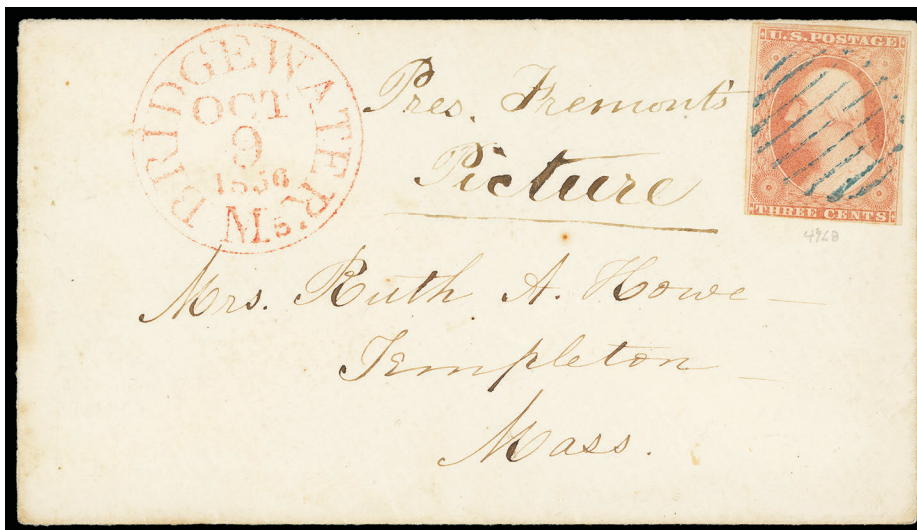 BRIDGEWATER
OCT
9
1856
Ms.
U.S. POSTAGE
THREE CENTS
Pres. Fremont's
Picture
Mrs. Ruth A. Howe
Templeton
Mass.